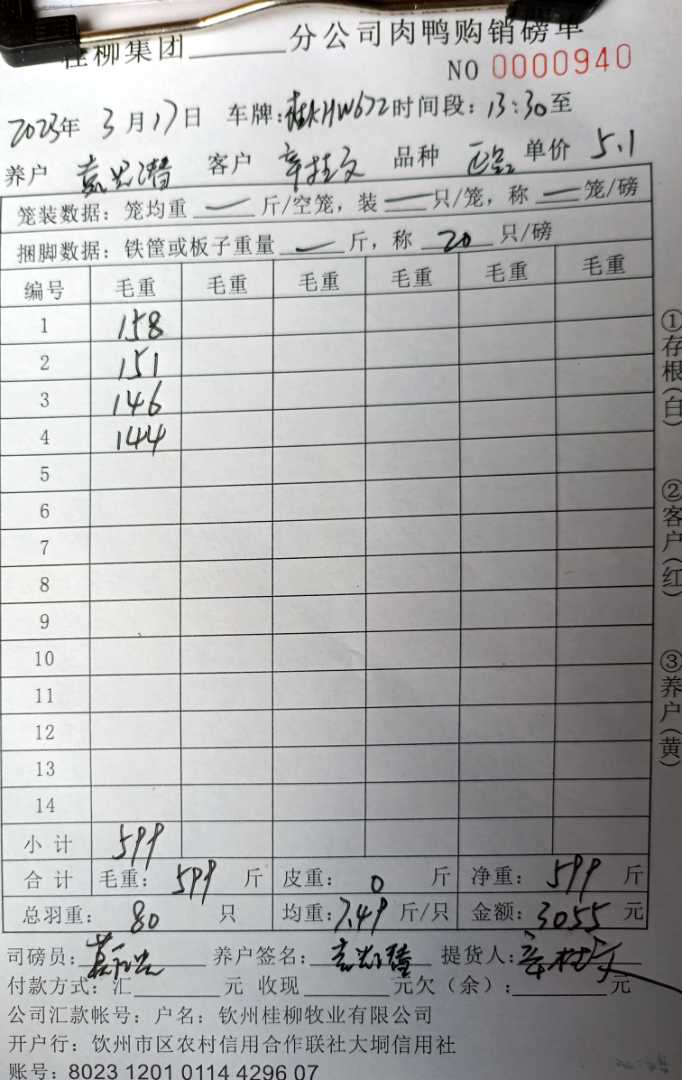 桂柳集团______分公司肉鸭购销磅单
NO 0000940
2023年 3月17日 车牌:桂KHW672 时间段:13:30至
养户 客户 辛桂文 品种 单价 5.1
笼装数据:笼均重 — 斤/空笼,装 — 只/笼,称 — 笼/磅
捆脚数据:铁筐或板子重量 — 斤,称 20 只/磅
编号 毛重 毛重 毛重 毛重 毛重 毛重
1 158
2 151
3 146
4 144
5
6
7
8
9
10
11
12
13
14
小计 599
合计 毛重: 599 斤 皮重: 0 斤 净重: 599 斤
总羽重: 80 只 均重:7.49 斤/只 金额:3055 元
司磅员: 养户签名: 提货人:辛桂文
付款方式:汇______元 收现______元欠(余):______元
公司汇款帐号:户名:钦州桂柳牧业有限公司
开户行:钦州市区农村信用合作联社大垌信用社
账号:8023 1201 0114 4296 07
①存根(白)
②客户(红)
③养户(黄)